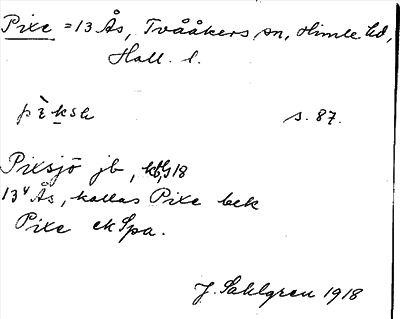 Pixe = 13 Ås, Tvååkers sn, Himle hd,
Hall. l.
pìksə s. 87.
Pixsjö jb, kbG18
13⁴ Ås, kallas Pixe bek
Pixe ek Spa.
J. Sahlgren 1918